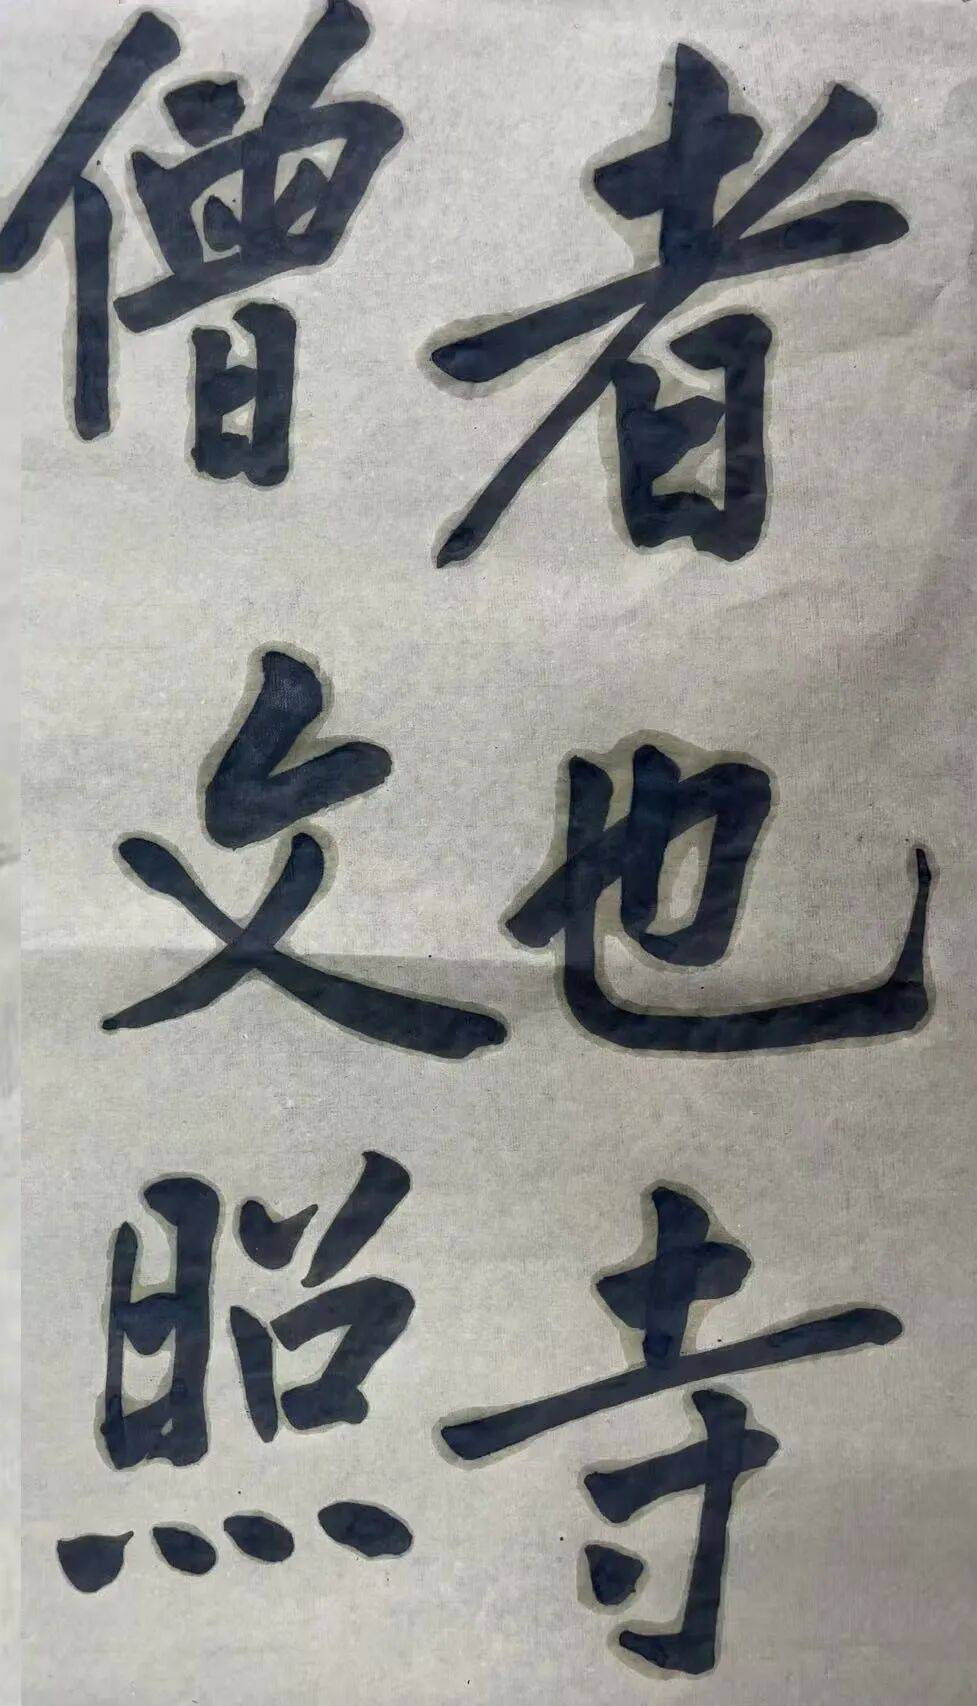 者也寺
僧文照